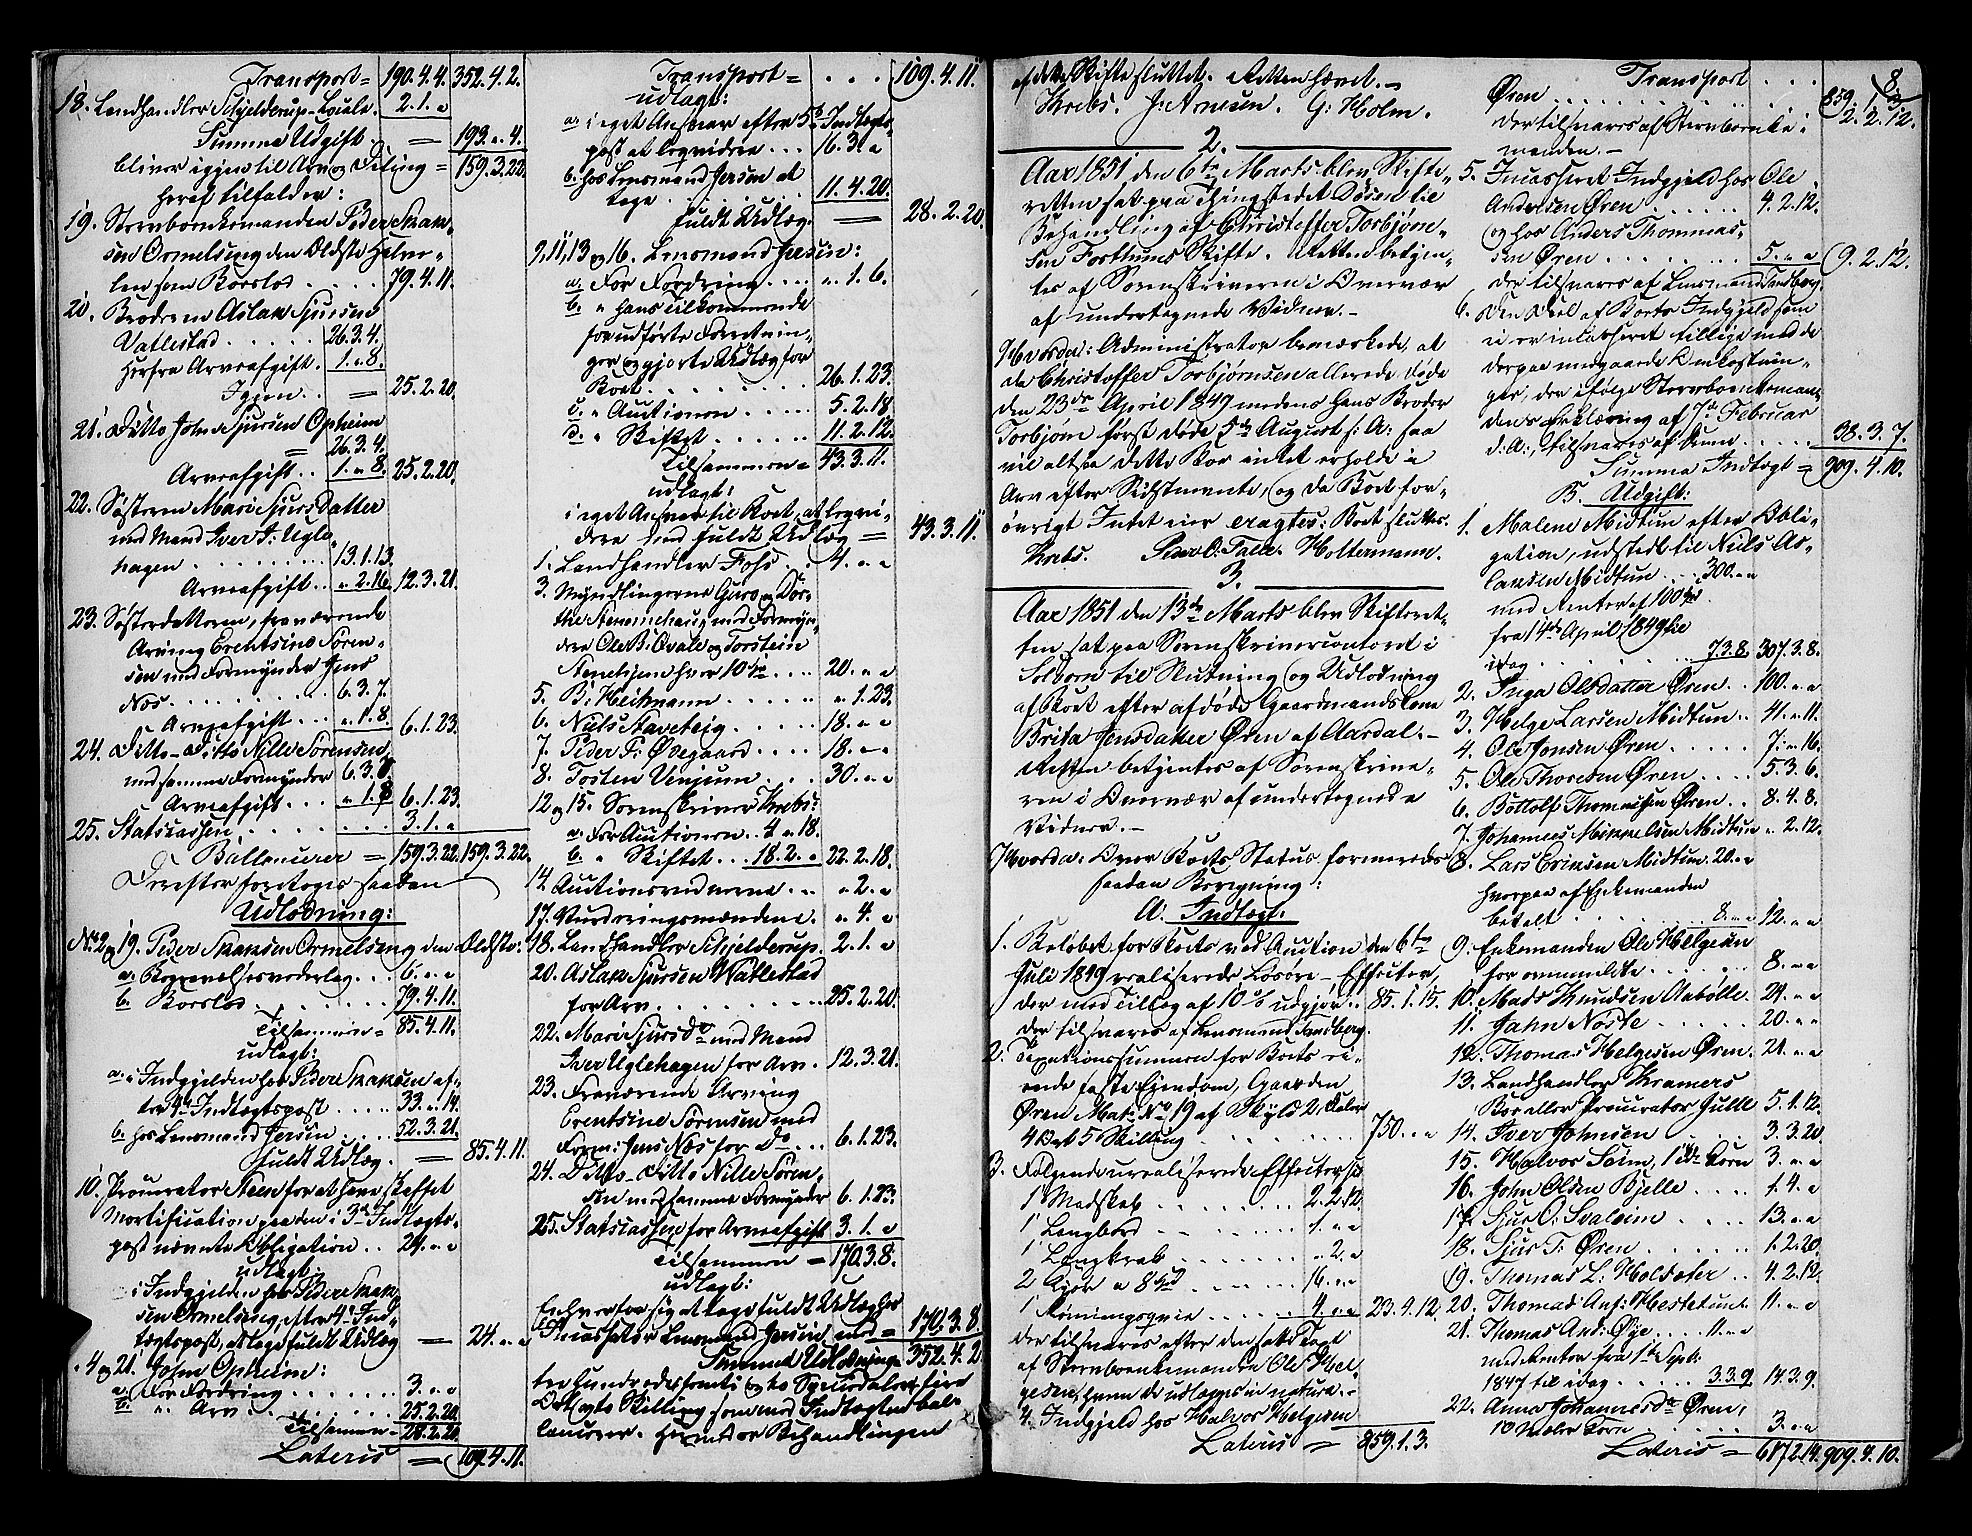 Transport = 190.4.4. 352.4.2.
18. Landhandler Schjelderup - Loule. 2.1.„
Summa Udgift = 193.„.4.
bliver igjen til Arv og Deling = 159.3.22.
heraf tilfalder:
19. Stervboenkemanden Peder Isak-
sen Ormelseng den Ældste Halvde-
len som Boeslod . . . . 79.4.11.
20. Broderen Aslak Sjursen
Vallestad . . . . . 26.3.4.
herfra Arveafgift. 1.„.8.
Igjen . . = 25.2.20.
21. Ditto John Sjursen Opheim
= 26.3.4.
Arveafgift . . 1.„.8. 25.2.20.
22. Søsteren Mari Sjurs Datter
med Mand Iver J. Ugle-
hagen . . . . . . . 13.1.13.
Arveafgift . . „.2.16. 12.3.21.
23. Søsterdatteren, fraværende
Arving Erentsine Søren-
sen med Formynder Jens
Næs . . . . . . . 6.3.7.
Arveafgift . . . „.1.8. 6.1.23.
24. Ditto - Ditto Nille Sørensen,
med samme Formynder 6.3.7.
Arveafgift . . . „.1.8. 6.1.23.
25. Statskassen . . . . . . 3.1.„
Ballancerer = 159.3.22. 159.3.22.
Derefter foretoges saadan
Udlodning:
No 2 og 19. Peder Isaksen Ormelseng, den Ældste.
a. Begravelsesvederlag . . . 6.„.„
b. Boeslod . . . . . . . 79.4.11.
Tilsammen = 85.4.11.
udlagt:
a. i Indgjelden hos Peder Isaksen ef-
ter 4de Indtægtspost . . . . 33.„.14.
b. hos Lensmand Jersin . . . 52.3.21.
fuldt Udlæg . = 85.4.11.
10. Procurator Neess for at have skaffet
Mortification paa den i 3die Indtægts-
post nævnte Obligation . . 24.„.„
udlagt:
i Indgjelden hos Peder Isak-
sen Ormelseng, efter 4de Ind-
tægtspost, at tage fuldt Udlæg = 24.„.„
4 og 21. John Opheim:
a. For Fordring . . . . . . . 3.„.„
b. „ Arv . . . . . . 25.2.20.
Tilsammen = 28.2.20.
Lateris = 109.4.11.
Transport = . . . 109.4.11.
udlagt:
a. i eget Ansvar efter 5te Indtægts-
post at liqvidere . . . 16.3.„
b. hos Lensmand Jersin at
tage . . . . . . . 11.4.20.
fuldt Udlæg = 28.2.20.
9, 11, 13 og 16. Lensmand Jersin:
a. For Fordring . . . „.1.6.
b. „ hans Tilkommende
for udførte Forretnin-
ger og gjorte Udlæg for
Boet . . . . . . . . 26.1.23.
c. „ Auctionen . . . . 5.2.18.
d. „ Skiftet . . . . . . 11.2.12.
Tilsammen = 43.3.11.
udlagt:
i eget Ansvar til Boet, at liqvi-
dere med fuldt Udlæg = 43.3.11.
1. Landhandler Fohs . . . 4.„.„
3. Myndlingerne Guro og Dor-
the Stenenhaug med Formyn-
dere Ole B. Qvale og Torstein
Stenehjem hver 10 Spd . . . 20.„.„
5. B. Heitmann . . . . . „.1.23.
6. Niels Stavetejg . . . . 18.„.„
7. Peder T. Øvregaard . . . . 18.„.„
8. Tosten Vinjum . . . 30.„.„
12 og 15. Sorenskriver Krebs:
a. For Auctionen . . 4.„.18.
b. „ Skiftet . . . 18.2.„ 22.2.18.
14. Auctionsvidnerne . . . „.2.„
17. Vurderingsmændene . . „.4.„
18. Landhandler Schjelderup 2.1.„
20. Aslak Sjursen Wallestad
for Arv . . . . . . . . . 25.2.20.
22. Mari Sjursdr med Mand
Iver Uglehagen for Arv . 12.3.21.
23. Fraværende Arving
Erentsine Sørensen med
Form: Jens Næs for Do . . . 6.1.23.
24. Ditto - Ditto Nille Søren-
sen med samme Formynder 6.1.23.
25. Statskassen for Arveafgift 3.1.„
Tilsammen = 170.3.8.
udlagt:
Enhver for sig at tage fuldt Udlæg hos
Incassator Lensmand Jersin med = 170.3.8.
Summa Udlodning = 352.4.2.
tre hundrede femti og to Speciedaler fire
Ort og to Skilling, som med Indtægten bal-
lancerer. Hermed er Behandlingen
af dette Skifte sluttet. Retten hævet. -
Krebs. J. Arnesen. G: Holm.
2.
Aar 1851 den 6te Marts blev Skifte-
retten sat paa Thingstedet Døsen til
Behandling af Christoffer Torbjørn-
sen Forthuns Skifte. Retten betjen-
tes af Sorenskriveren i Overvær
af undertegnede Vidner. -
Hvorda: Administrator bemærkede, at
da Christoffer Torbjørnsen allerede døde
den 23de April 1849 medens hans Broder
Torbjørn først døde 5te August s: A: saa
vil altsaa dette Boe intet erholde i
Arv efter Sidstmente, og da Boet for-
øvrigt Intet eier eragtes: Boet sluttet.
Krebs. Peder O. Fahle. Holtermann.
3.
Aar 1851 den 13de Marts blev Skifteret-
ten sat paa Sorenskrivercontoret i
Solvorn til Slutning og Udlodning
af Boet efter afdøde Gaardmandskone
Brita Jensdatter Øren af Aardal. -
Retten betjentes af Sorenskrive-
ren i Overvær af undertegnede
Vidner. -
Hvorda: Over Boets Status formeredes
saadan Beregning:
A. Indtægt.
1. Beløbet for Boets ved Auction den 6te
Juli 1849 realiserede Løsøre-Effecter,
der med Tillæg af 10 % udgjør . . 85.1.15.
der tilsvares af Lensmand Sandberg.
2. Taxationssummen for Boets ei-
ende faste Eiendom, Gaarden
Øren Mat: No 19 af Skyld 2 Daler
4 Ort 5 Skilling . . . . . . . 750.„.„
3. Følgende urealiserede Effecter:
1 Madskab . . . . . . . . 2.2.12.
1 Langbord . . . . . . . 1.„.„
1 Langkrak . . . . . . . „.2.„
2 Kjør a 8 Spd . . . . . . 16.„.„
1 Kviningsqvie . . . . 4.„.„ 23.4.12.
der tilsvares efter den satte Taxt
af Stervboenkemanden Ole Hel-
gesen, hvem de udlægges in natura. -
4. Indgjeld hos Halvor Helgesen
Lateris = 859.1.3.
8.
Transport . . . 859.1.3.
Øren . . . . . . . . . . . . 2.2.12.
der tilsvares af Stervboenke-
manden. -
5. Incasseret Indgjeld hos Ole
Andersen Øren . . . . . 4.2.12.
og hos Anders Thommas-
sen Øren . . . . . . . . 5.„.„ 9.2.12.
der tilsvares af Lensmand Sandberg.
6. Den Deel af Boets Indgjeld som
ei er incasseret tillige med de
derpaa medgaaede Omkostnin-
ger, der ifølge Stervboenkeman-
dens Erklæring af 7de Februar
d: A:, tilsvares af ham . . . . . 38.3.7.
Summa Indtægt = 909.4.10.
B. Udgift:
1. Malene Midtun efter Obli-
gation, udstedt til Niels As-
laksen Midtun . . . 300.„.„
med Renter af 100 Spd
fra 14de April 1849 til
idag . . . . . . . . 7.3.8. 307.3.8.
2. Inga Olsdatter Øren . . 100.„.„
3. Helge Larsen Midtun . . 41.„.11.
4. Ole Jonsen Øren . . . . . 7.„.16.
5. Ole Thoresen Øren . . . . 5.3.6.
6. Bottolf Thomassen Øren . . 8.4.8.
7. Johannes Mikkelsen Midtun „.2.12.
8. Lars Eriksen Midtun 20.„.„
hvorpaa af Enkemanden
betalt . . . . . . . . . 8.„.„ 12.„.„
9. Enkemanden Ole Helgesen
for ommeldte . . . . . . . 8.„.„
10. Mads Knudsen Aabølle . 24.„.„
11. Jahn Noste . . . . . 20.„.„
12. Thomas Helgesen Øren . 21.„.„
13. Landhandler Kramers
Boe eller Procurator Jülle 5.1.12.
14. Iver Johnsen . . . . . 3.3.20.
15. Halvor Seim, 1 Td. Korn 3.„.„
16. John Olsen Bjelle . . . . 1.4.„
17. Sjur O. Svaleim . . . . 13.„.„
18. Sjur T. Øren . . . . . . 1.2.20.
19. Thomas L: Holsæter . . 4.2.12.
20. Thomas Anf: Hestetunet 11.„.„
21. Thomas And: Øye . . . . 11.„.„
med Renter fra 1te Septb:
1847 til idag . . . . . 3.3.9. 14.3.9.
22. Anna Johannesdr Øren,
10 Mæler Korn . . . . . 3.„.„
Lateris = 617.2.14. 909.4.10.